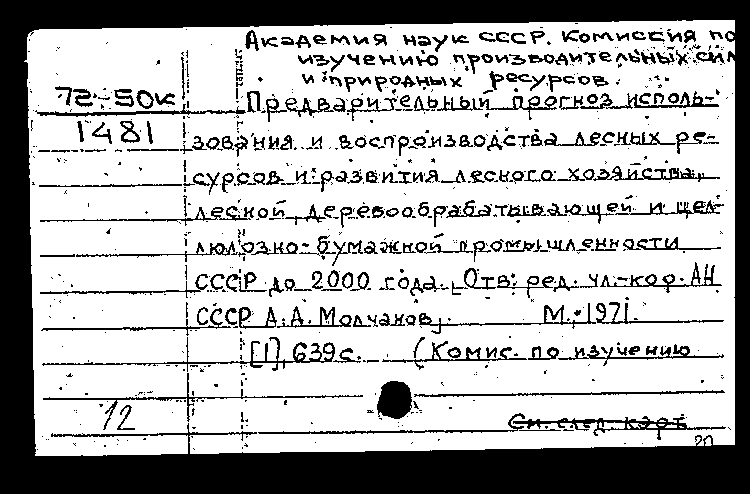 Академия наук СССР. Комиссия по
изучению производительных сил
и природных ресурсов.
72-50к
1481
Предварительный прогноз исполь-
зования и воспроизводства лесных ре-
сурсов и развития лесного хозяйства,
лесной, деревообрабатывающей и цел-
люлозно-бумажной промышленности
СССР до 2000 года. [Отв. ред. чл.-кор. АН
СССР А.А. Молчанов]. М., 1971.
[1], 639 с. (Комис. по изучению
12
См. след. карт.
20